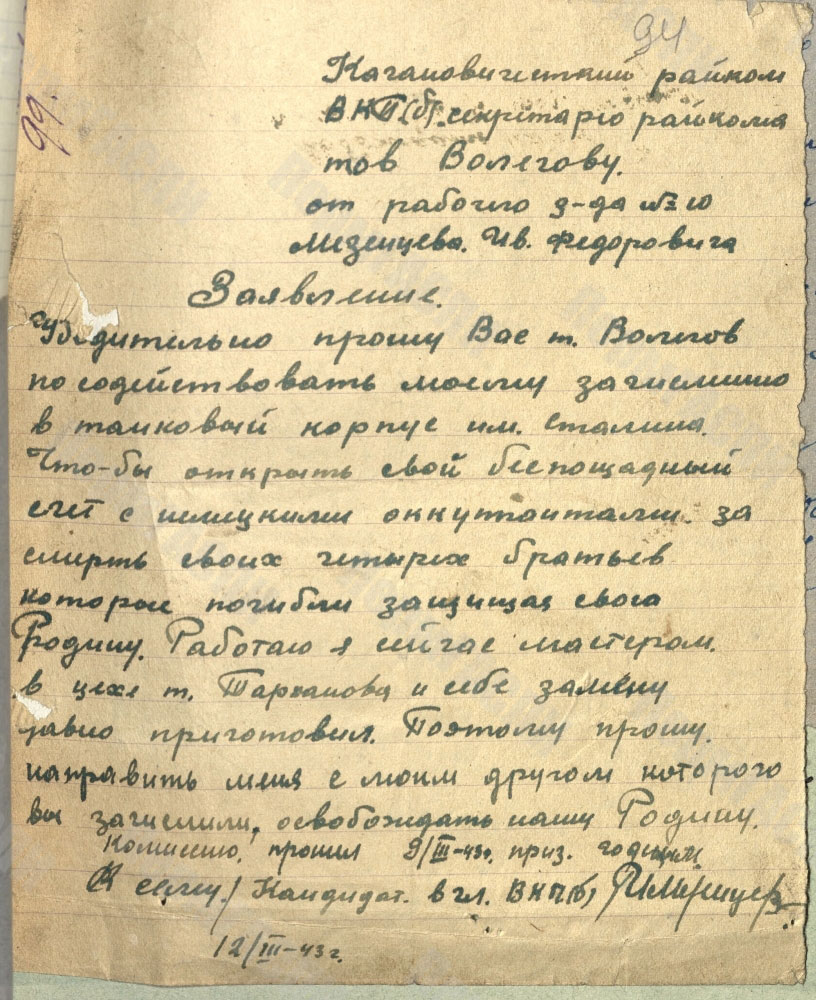 94
99.
Кагановический райком
ВКП(б). секритарю райкома
тов Волегову.
от рабочго з-да № 10
Мезенцева. Ив. Федоровича
Заявление.
Убедительно прошу Вас т. Волегов
посодействовать моему зачислинию
в танковый корпус им. Сталина.
Что-бы открыть свой беспощадный
счет с немецкими оккупонтами. за
смерть своих четырех братьев
которые погибли защищая свою
Родину. Работаю я сейчас мастером.
в цехе т. Тарханова и себе замену
давно приготовил. Поэтому прошу.
направить меня с моим другом которого
вы зачислили, освобождать нашу Родину.
Комиссию, прошел 9/III-43г. приз. годным.
К сему / Кандидат. в чл. ВКП(б)
12/III-43 г.